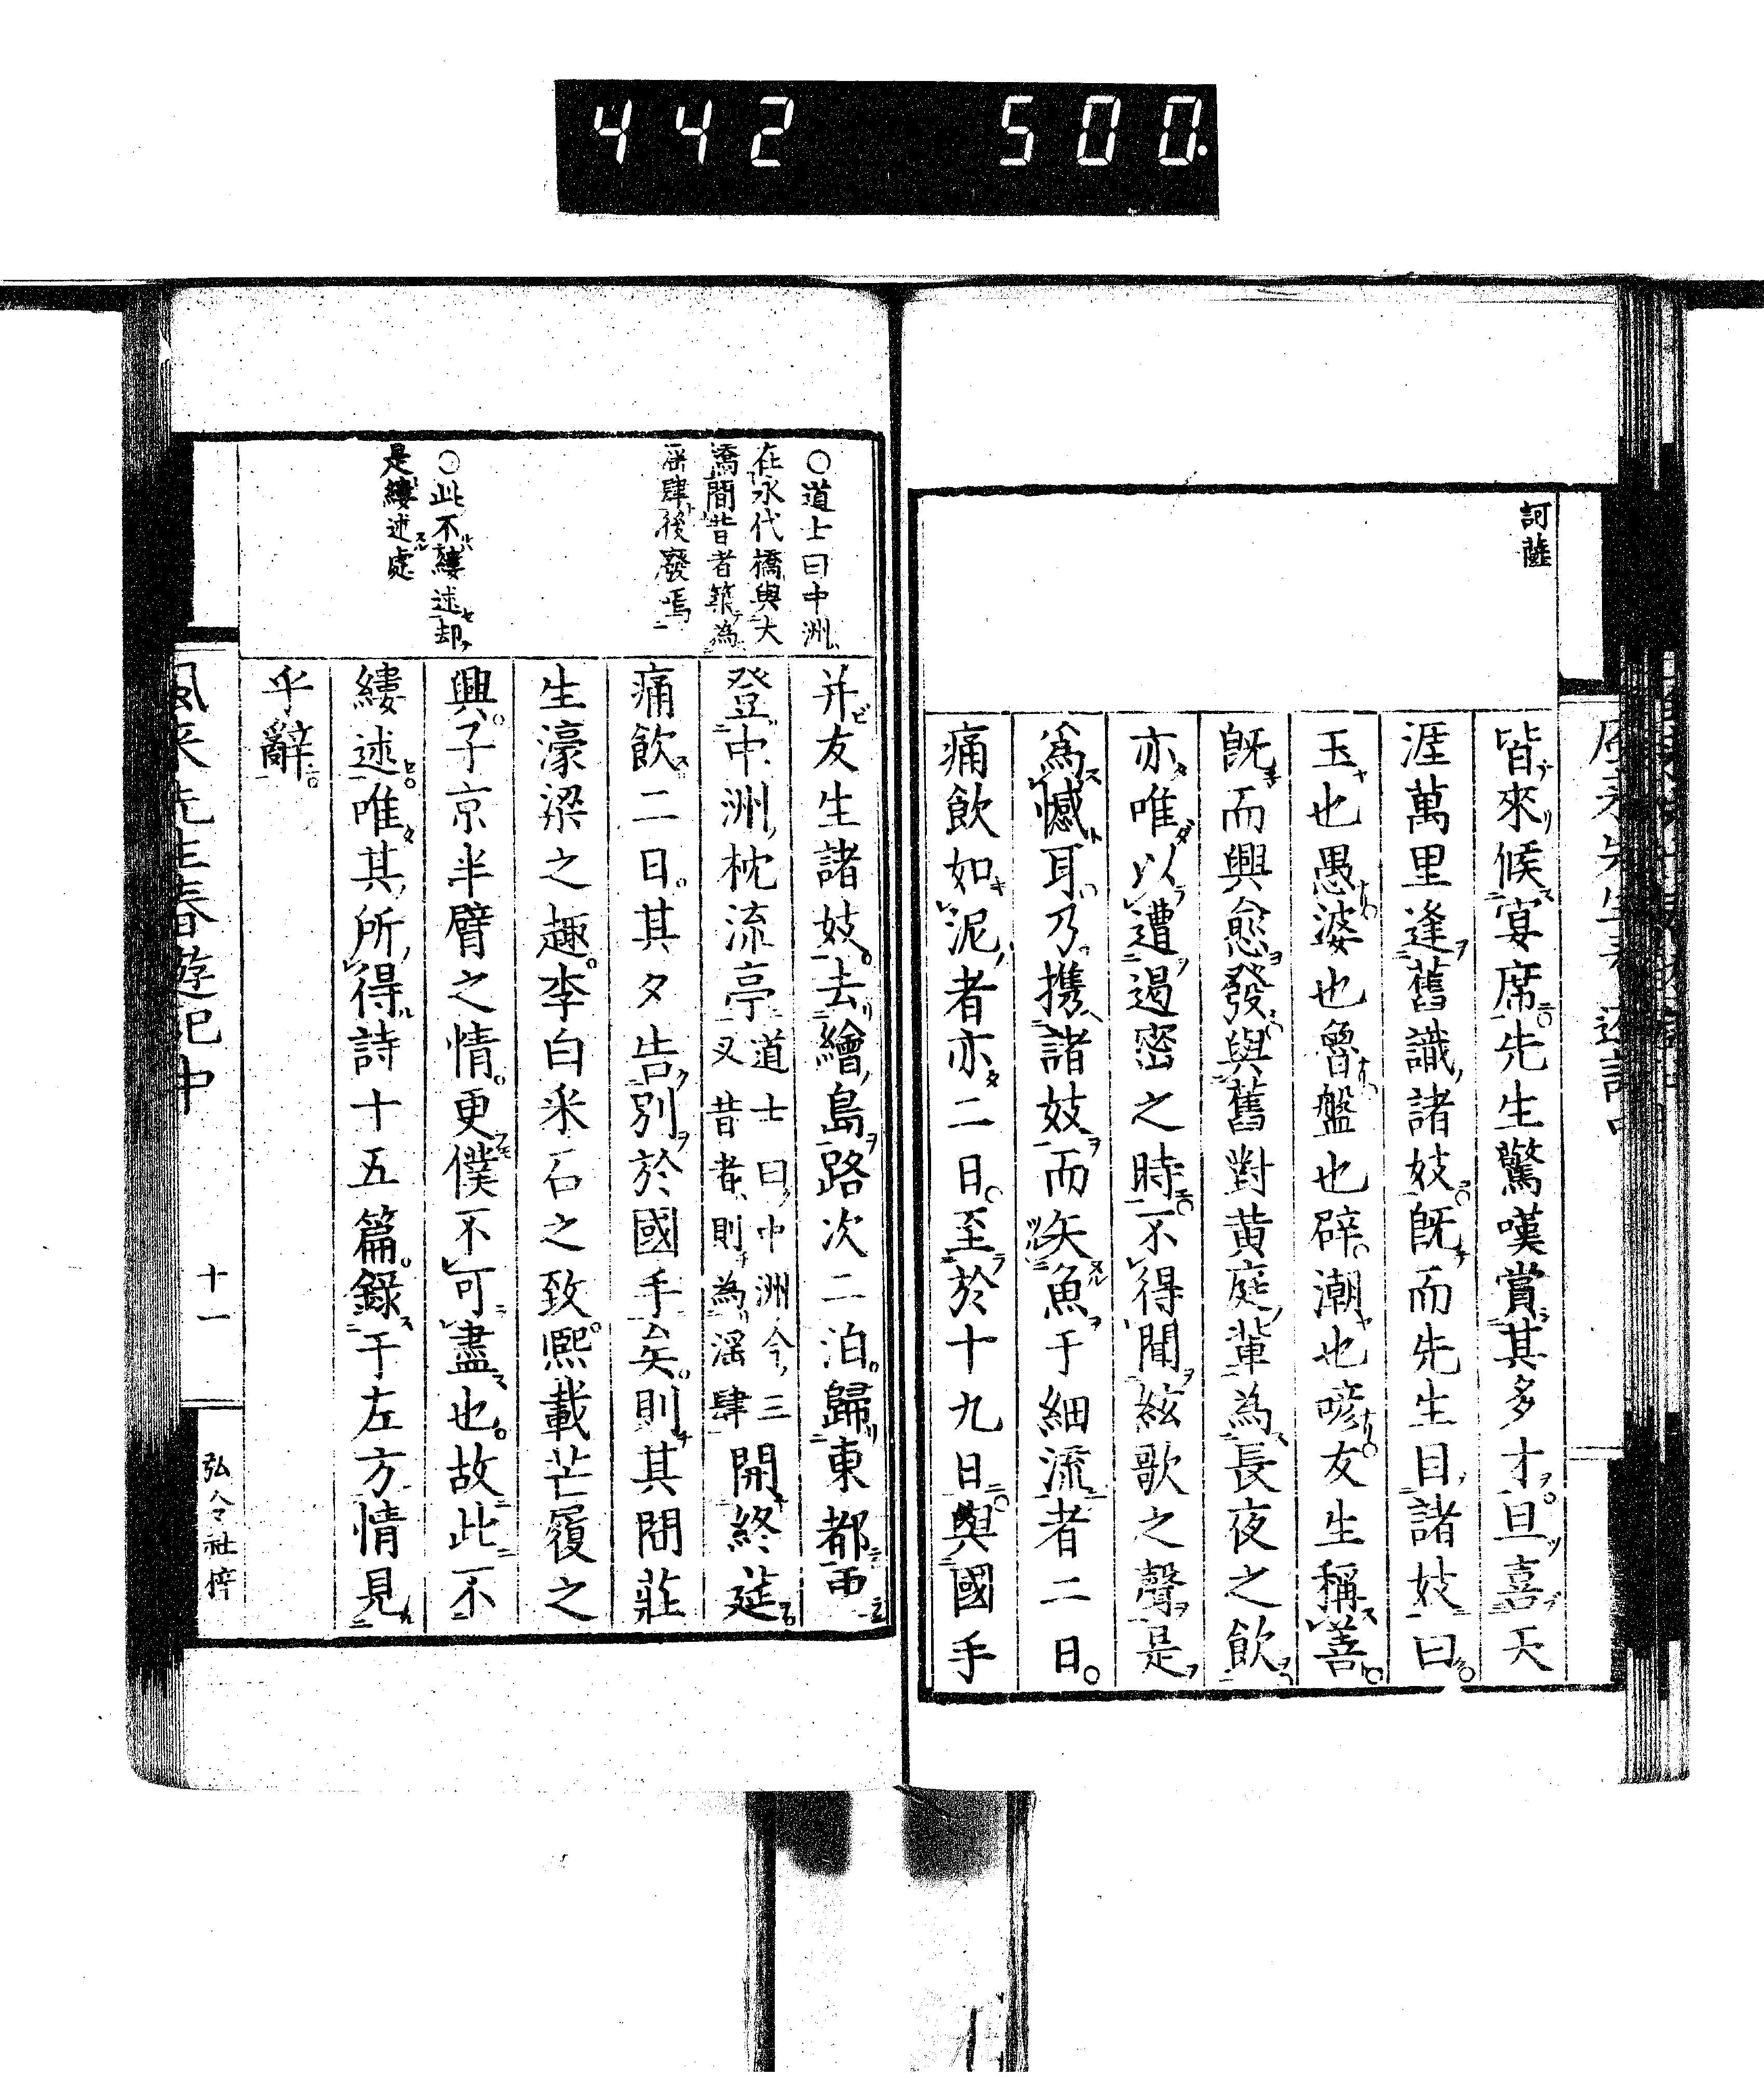 442 500.
訶薩
皆來候宴席先生驚嘆賞其多才且喜天
涯萬里逢舊識諸妓既而先生目諸妓曰
玉也愚婆也魯盤也辟潮也喭友生稱善
既而興愈發與舊對黄庭輩為長夜之飲
亦唯以遭遏密之時不得聞絃歌之聲是
為憾耳乃携諸妓而矢魚于細流者二日
痛飲如泥者亦二日至於十九日與國手
○道士曰中洲
在永代橋與大
橋間昔者築為
淫肆後廢焉
○此不縷述却
是縷述處
并友生諸妓去繪島路次二泊歸東都而
登中洲枕流亭道士曰中洲今三
又昔者則為淫肆開終筵
痛飲二日其夕告別於國手矣則其間莊
生濠梁之趣李白采石之致熙載芒履之
興子京半臂之情更僕不可盡也故此不
縷述唯其所得詩十五篇録于左方情見
乎辭
風来先生春遊記中
十一
弘令社梓